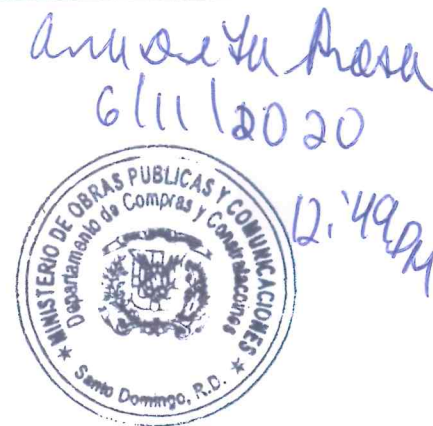 Ana De La Rosa
6/11/2020
12:49 PM
MINISTERIO DE OBRAS PUBLICAS Y COMUNICACIONES
Departamento de Compras y Contrataciones
Santo Domingo, R.D.